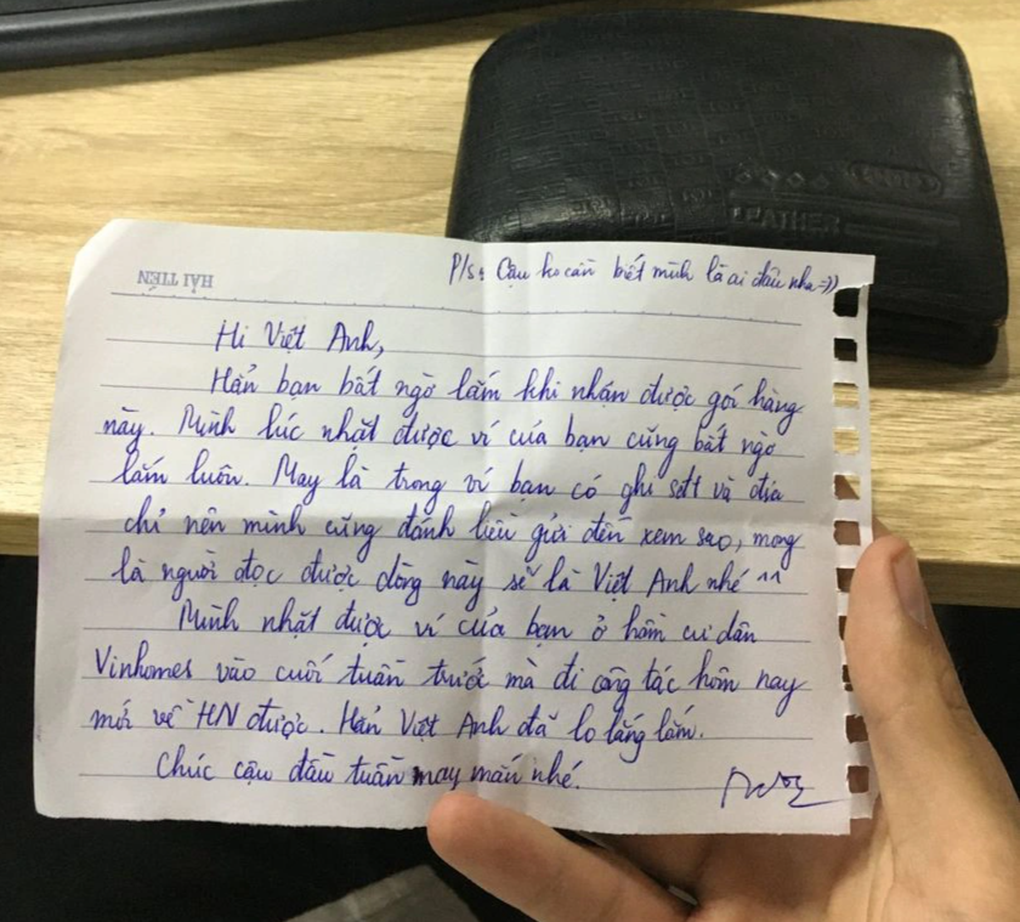 HẢI TIẾN
P/s: Cậu ko cần biết mình là ai đâu nha =))
Hi Việt Anh,
Hẳn bạn bất ngờ lắm khi nhận được gói hàng
này. Mình lúc nhặt được ví của bạn cũng bất ngờ
lắm luôn. May là trong ví bạn có ghi sđt và địa
chỉ nên mình cũng đánh liều gửi đến xem sao, mong
là người đọc được dòng này sẽ là Việt Anh nhé ^^
Mình nhặt được ví của bạn ở hầm cư dân
Vinhomes vào cuối tuần trước mà đi công tác hôm nay
mới về HN được. Hẳn Việt Anh đã lo lắng lắm.
Chúc cậu đầu tuần may mắn nhé.
LEATHER